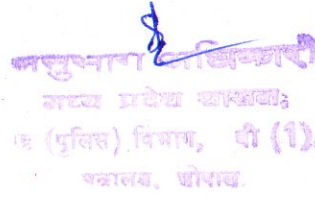 अनुभाग अधिकारी
मध्य प्रदेश शासन,
(पुलिस) विभाग, बी (1)
मंत्रालय, भोपाल